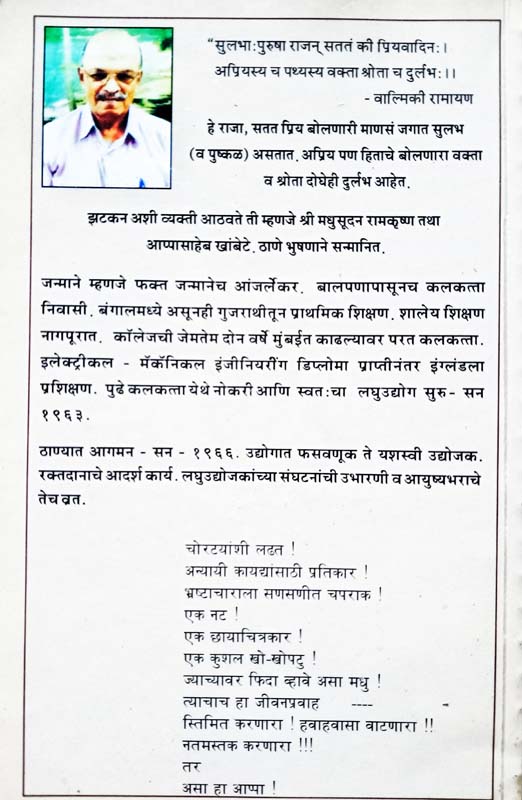 “सुलभाःपुरुषा राजन् सततं की प्रियवादिनः।
अप्रियस्य च पथ्यस्य वक्ता श्रोता च दुर्लभः।।
- वाल्मिकी रामायण
हे राजा, सतत प्रिय बोलणारी माणसं जगात सुलभ
(व पुष्कळ) असतात. अप्रिय पण हिताचे बोलणारा वक्ता
व श्रोता दोघेही दुर्लभ आहेत.
झटकन अशी व्यक्ती आठवते ती म्हणजे श्री मधुसूदन रामकृष्ण तथा
आप्पासाहेब खांबेटे. ठाणे भुषणाने सन्मानित.
जन्माने म्हणजे फक्त जन्मानेच आंजर्लेकर. बालपणापासूनच कलकत्ता
निवासी. बंगालमध्ये असूनही गुजराथीतून प्राथमिक शिक्षण. शालेय शिक्षण
नागपूरात. कॉलेजची जेमतेम दोन वर्षे मुंबईत काढल्यावर परत कलकत्ता.
इलेक्ट्रीकल - मॅकॅनिकल इंजीनियरींग डिप्लोमा प्राप्तीनंतर इंग्लंडला
प्रशिक्षण. पुढे कलकत्ता येथे नोकरी आणि स्वतःचा लघुउद्योग सुरु - सन
१९६३.
ठाण्यात आगमन - सन - १९६६. उद्योगात फसवणूक ते यशस्वी उद्योजक.
रक्तदानाचे आदर्श कार्य. लघुउद्योजकांच्या संघटनांची उभारणी व आयुष्यभराचे
तेच व्रत.
चोरटयांशी लढत !
अन्यायी कायद्यांसाठी प्रतिकार !
भ्रष्टाचाराला सणसणीत चपराक !
एक नट !
एक छायाचित्रकार !
एक कुशल खो-खोपटु !
ज्याच्यावर फिदा व्हावे असा मधु !
त्याचाच हा जीवनप्रवाह ----
स्तिमित करणारा ! हवाहवासा वाटणारा !!
नतमस्तक करणारा !!!
तर
असा हा आप्पा !